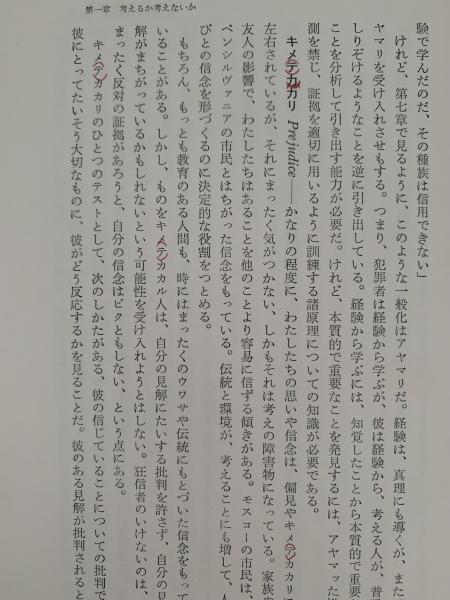 第一章　考えるか考えないか
験で学んだのだ、その種族は信用できない」
けれど、第七章で見るように、このような一般化はアヤマリだ。経験は、真理にも導くが、また
ヤマリを受け入れさせもする。つまり、犯罪者は経験から学ぶが、彼は経験から、考える人が、普
しりぞけるようなことを逆に引き出している。経験から学ぶには、知覚したことから本質的で重要
ことを分析して引き出す能力が必要だ。けれど、本質的で重要なことを発見するには、アヤマッた
測を禁じ、証拠を適切に用いるように訓練する諸原理についての知識が必要である。
キメテカカリ Prejudice――かなりの程度に、わたしたちの思いや信念は、偏見やキメテカカリに
左右されているが、それにまったく気がつかない、しかもそれは考えの障害物になっている。家族や
友人の影響で、わたしたちはあることを他のことより容易に信ずる傾きがある。モスコーの市民は、
ペンシルヴァニアの市民とはちがった信念をもっている。伝統と環境が、考えることにも増して、人
びとの信念を形づくるのに決定的な役割をつとめる。
もちろん、もっとも教育のある人間も、時にはまったくのウワサや伝統にもとづいた信念をもって
いることがある。しかし、ものをキメテカカル人は、自分の見解にたいする批判を許さず、自分の見
解がまちがっているかもしれないという可能性を受け入れようとはしない。狂信者のいけないのは、
まったく反対の証拠があろうと、自分の信念はビクともしない、という点にある。
キメテカカリのひとつのテストとして、次のしかたがある、彼の信じていることについての批判で
彼にとってたいそう大切なものに、彼がどう反応するかを見ることだ。彼のある見解が批判されると